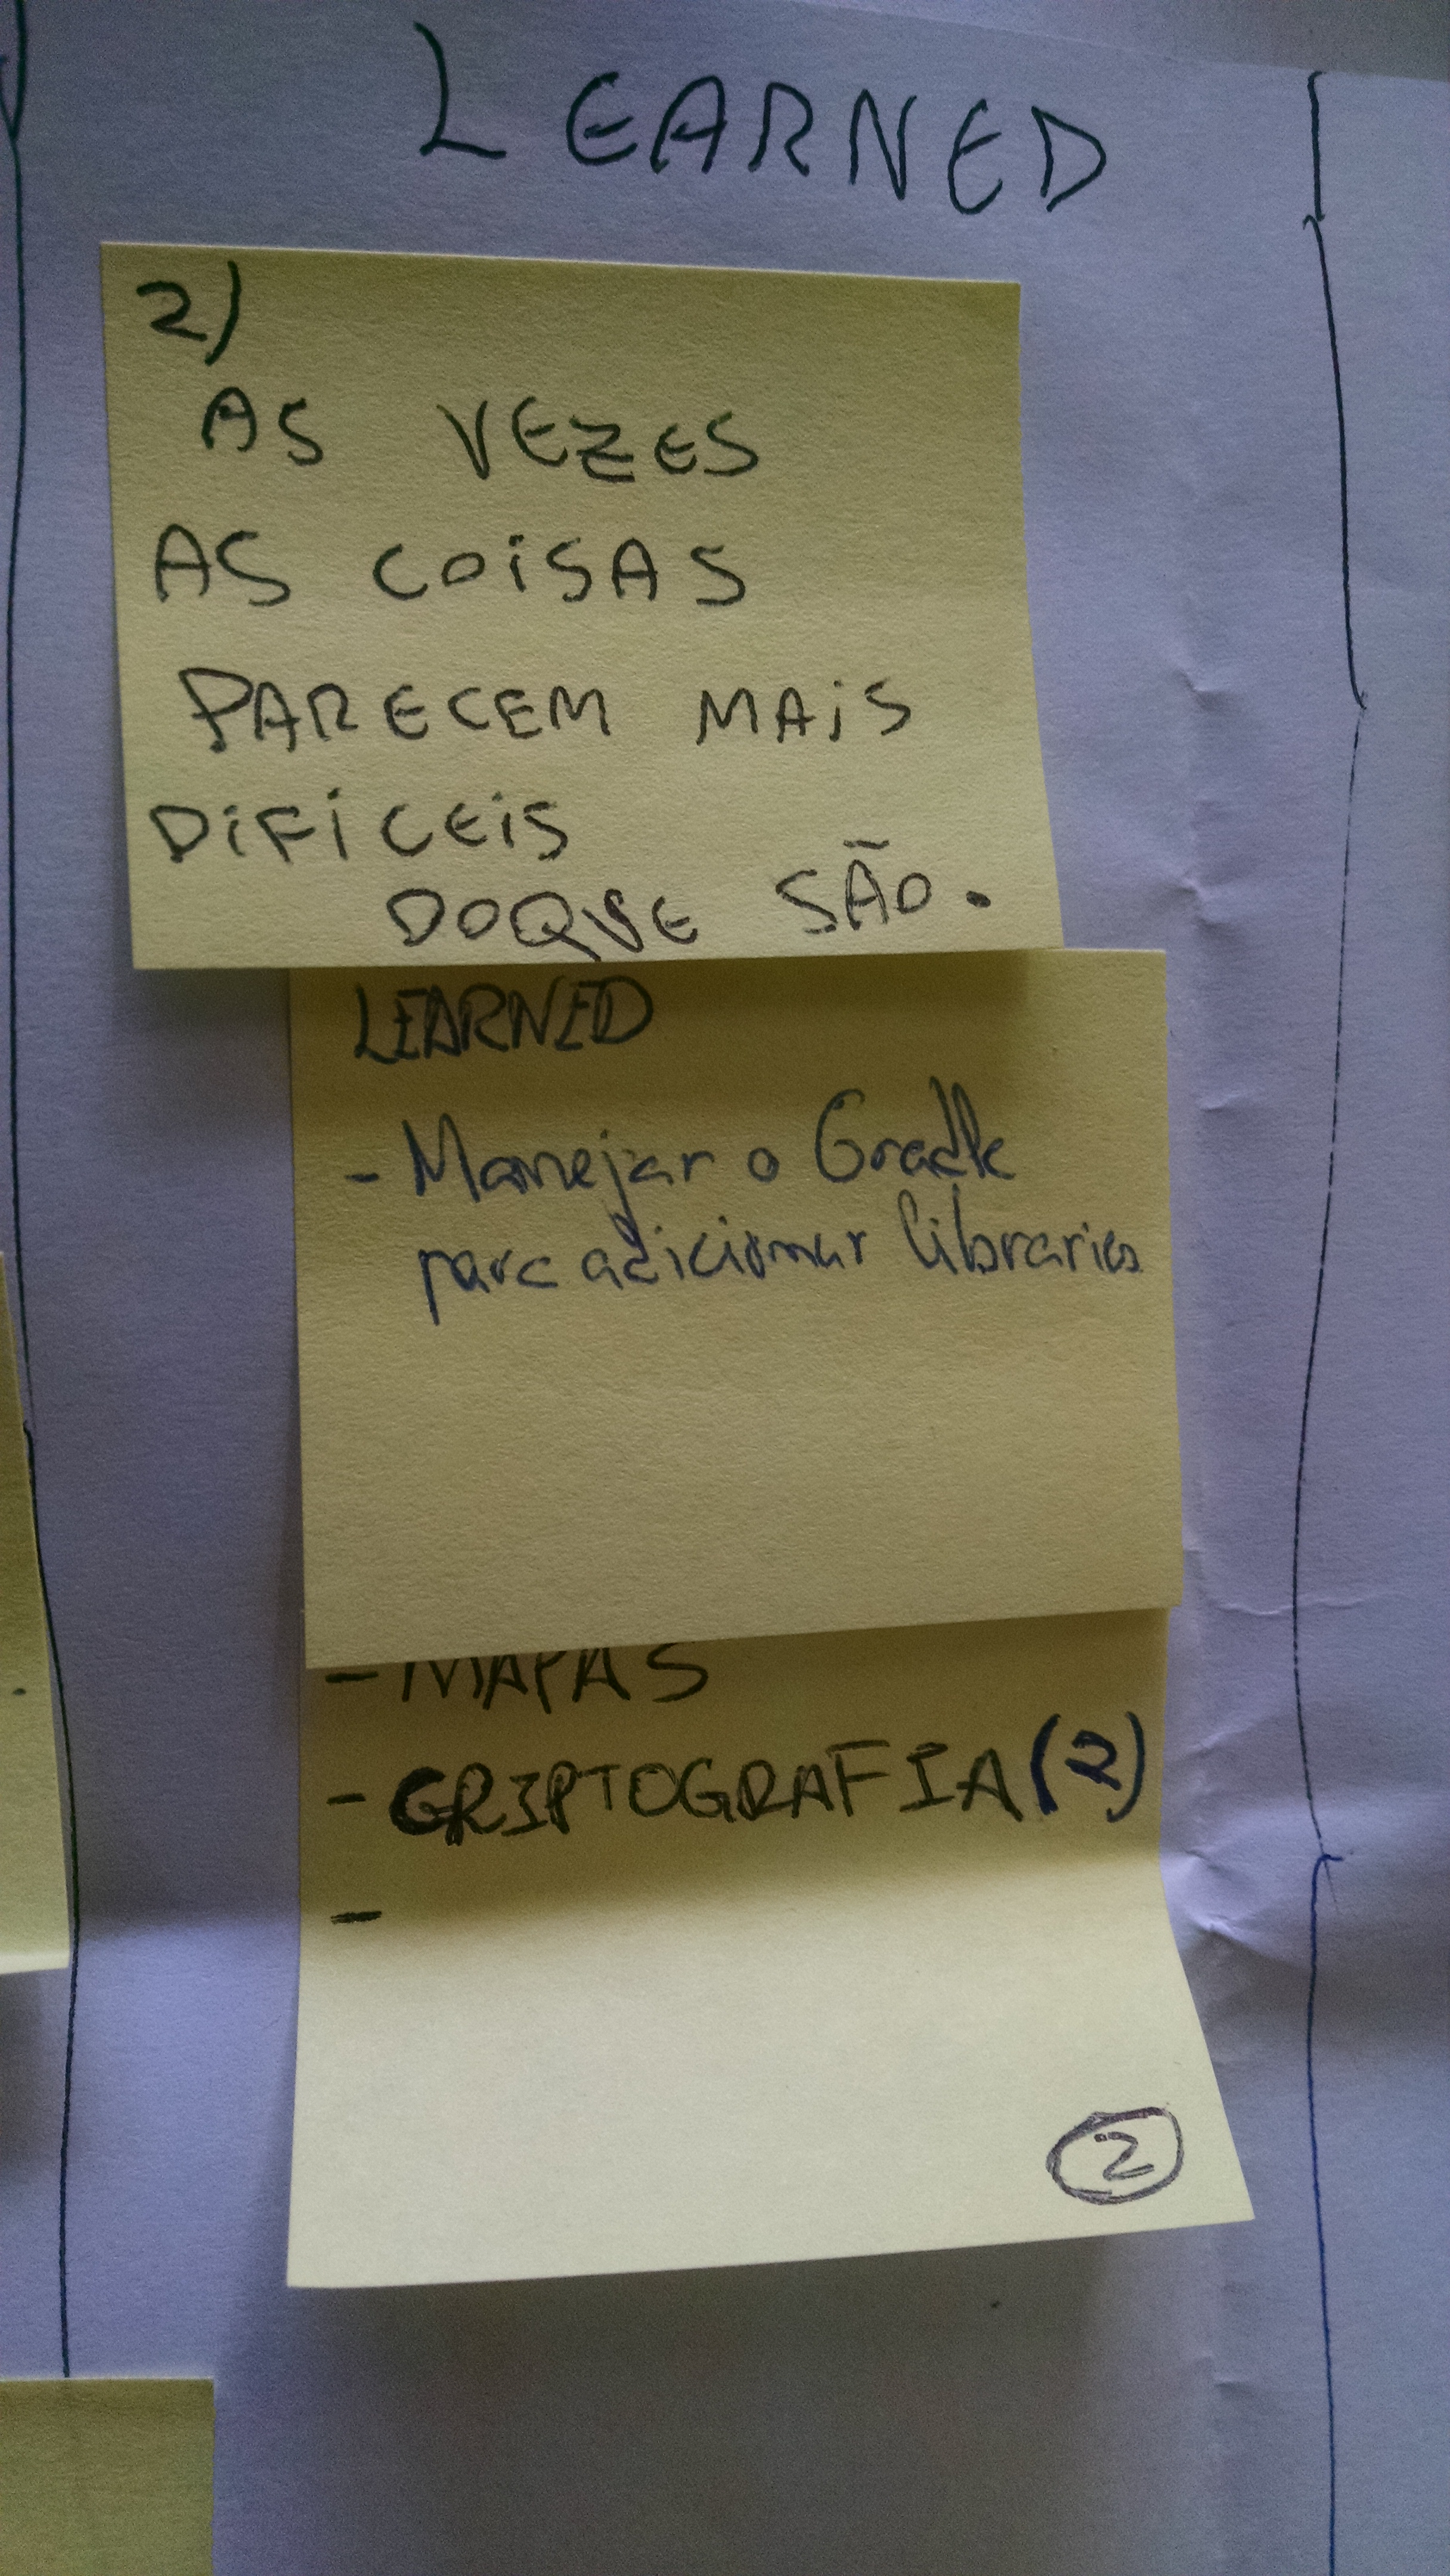 LEARNED
2)
AS VEZES
AS COISAS
PARECEM MAIS
DIFÍCEIS
DOQUE SÃO.
LEARNED
- Manejar o Gradle
para adicionar libraries
- MAPAS
- CRIPTOGRAFIA (2)
-
2